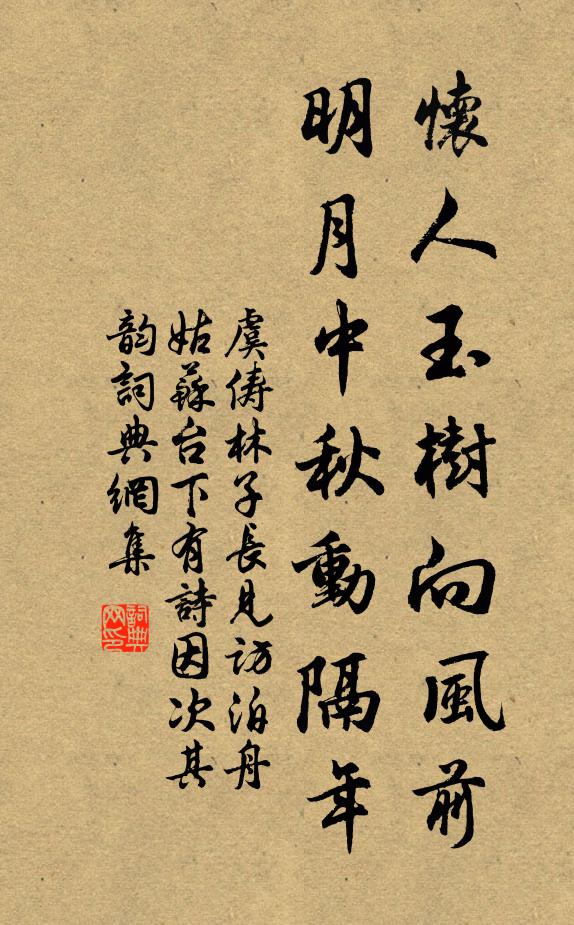 懷人玉樹向風前
明月中秋動隔年
虞儔林子長見訪泊舟
姑蘇台下有詩因次其
韵詞典網集
詞典
网印